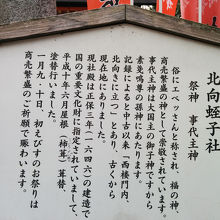 北向蛭子社
祭神 事代主神
俗にエベッさんと称され、福の神
商売繁盛の神として崇敬されています。
事代主神は大国主の御子神ですから
素戔嗚尊の尊神にあたります。
記録によると中古以来、西楼門内、
北向きに立つとあり、古くから
現在地にありました。
現社殿は正保三年(一六四六)の建造で
国の重要文化財に指定されていまして、
平成十年六月屋根(柿葺)葺替、
塗替を行いました。
一月九・十日、初えびすのお祭りは
商売繁盛のご祈願で賑わいます。